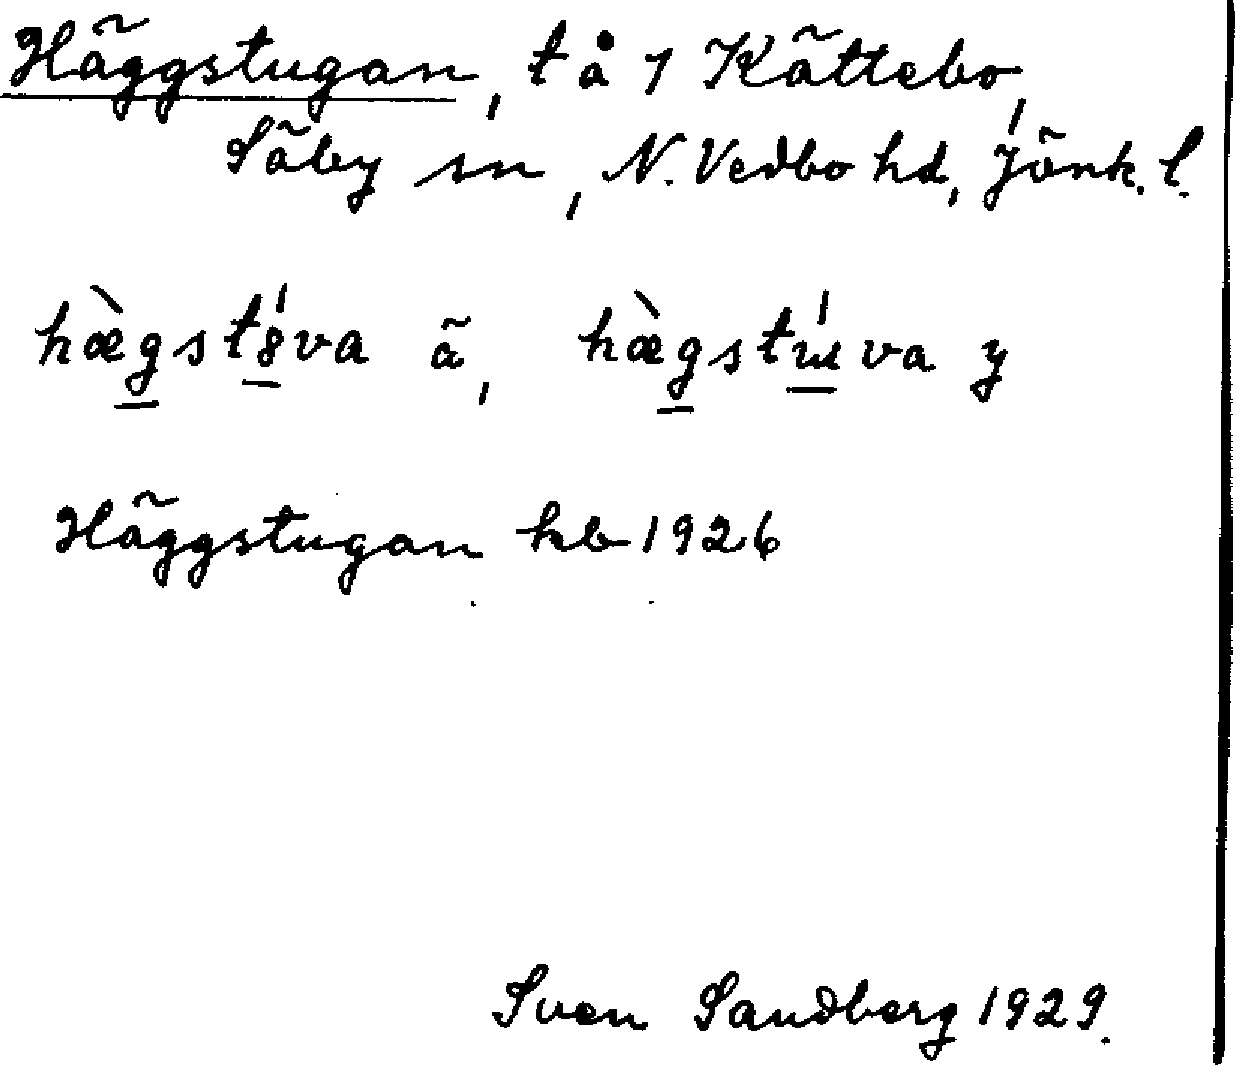 Häggstugan, tå 1 Kättebo,
Säby sn, N. Vedbo hd, Jönk. l.
hæ̀gst8́va ä, hæ̀gstɯ́va y
Häggstugan hb 1926
Sven Sandberg 1929.